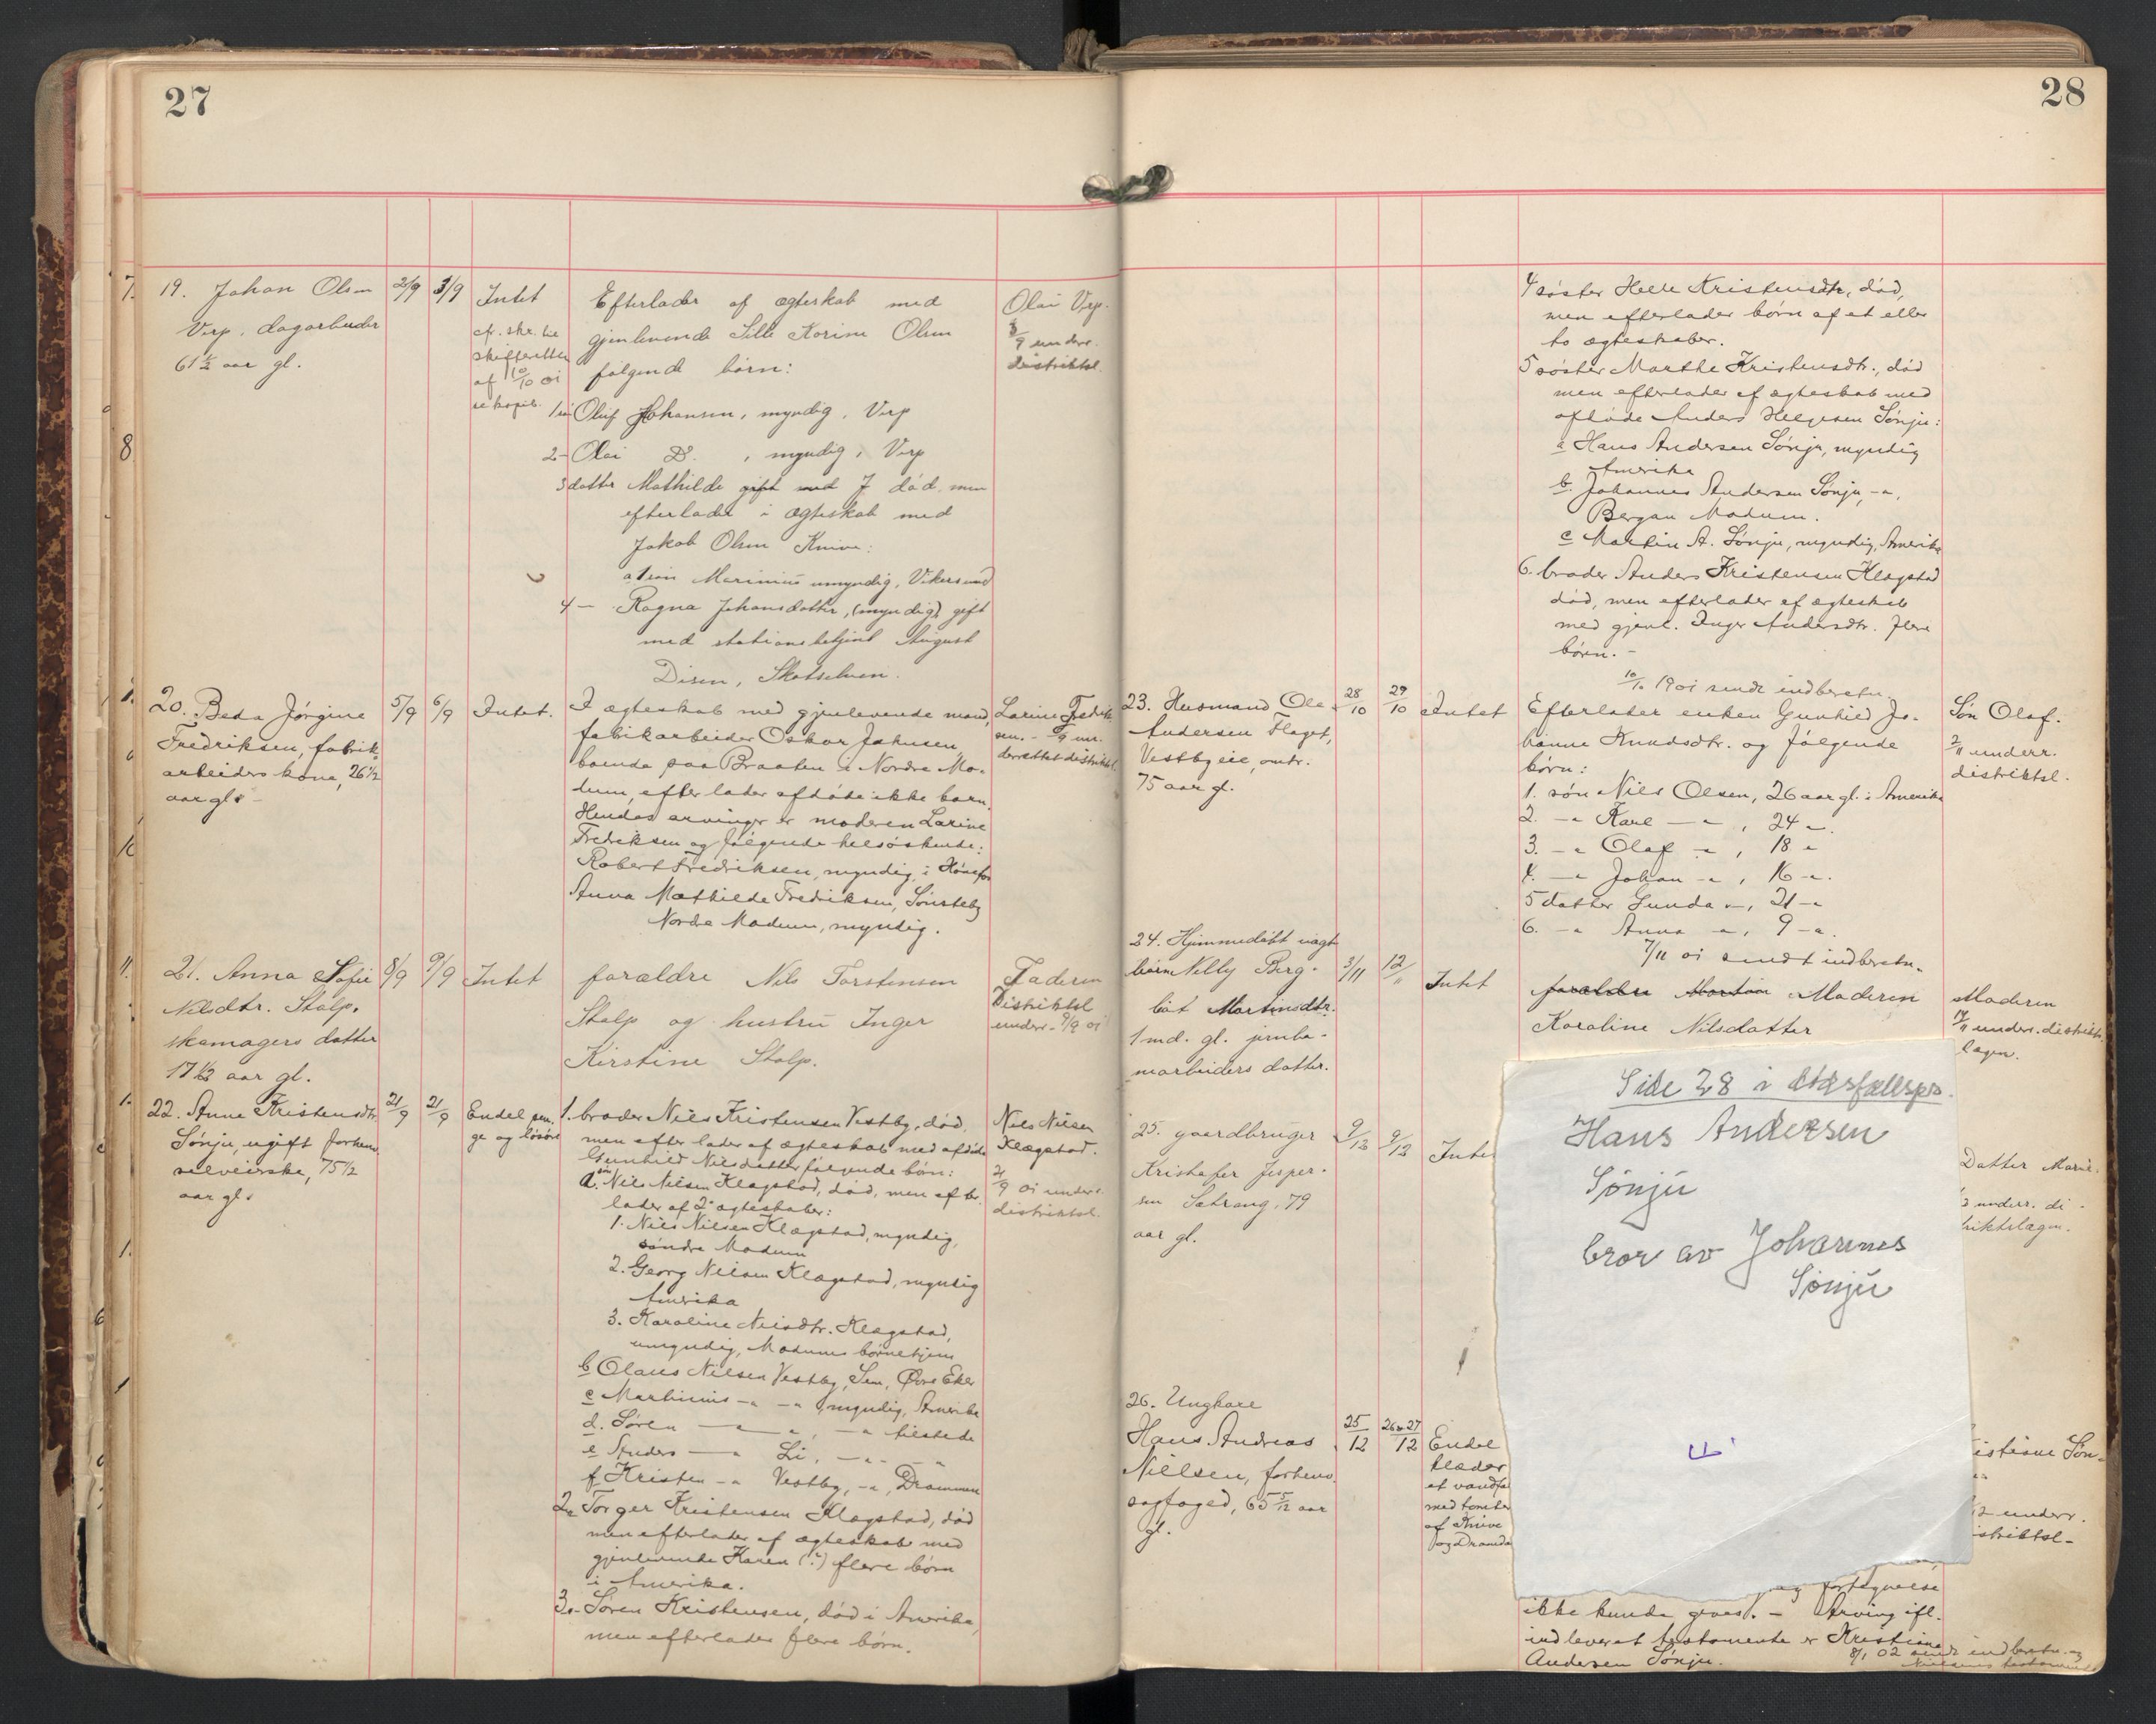 27
19. Johan Olsen
Verp, dagarbeider
61½ aar gl.
2/9
3/9
Intet
cfr. skr. til
skifteretten
af 10/10 01
se kopib.
Efterlader af ægteskab med
gjenlevende Sille Karine Olsen
følgende børn:
1 søn Oluf Johansen, myndig, Verp
2 - Olai Do. , myndig, Verp
3 datter Mathilde gift med J død, men
efterlader i ægteskab med
Jakob Olsen Knive:
a 1 søn Marinius umyndig, Vikersund
4 - Ragna Johansdatter, (myndig) gift
med stationsbetjent August
Disen, Skotselven.
Olai Verp.
3/9 underr.
distriktsl.
20. Beda Jørgine
Fredriksen, fabrik-
arbeiders kone, 26½
aar gl. -
5/9
6/9
Intet.
I ægteskab med gjenlevende mand,
fabrikarbeider Oskar Johnsen,
boende paa Braaten i Nordre Mo-
dum, efterlader afdøde ikke barn.
Hendes arvinger er moderen Larine
Fredriksen og følgende helsøskende:
Robert Fredriksen, myndig, i Hønefos
Anna Mathilde Fredriksen, Sønsteby
Nordre Modum, myndig.
Larine Fredrik-
sen. - 6/9 un-
derrettet distriktsl.
21. Anna Sofie
Nilsdtr. Stalp,
skomagers datter
17½ aar gl.
8/9
9/9
Intet
forældre Nils Torstensen
Stalp og hustru Inger
Kirstine Stalp.
Faderen
Distriktsl
underr. 9/9 01
22. Anne Kristensdtr.
Sønju, ugift forhenv.
selveierske, 75½
aar gl.
21/9
21/9
Endel pen-
ge og løsøre
1. broder Niels Kristensen Vestby, død,
men efterlader af ægteskab med afdøde
Gunhild Nilsdatter følgende børn:
a. søn Nils Nilsen Klagstad, død, men efter-
lader af 2 ægteskaber:
1. Nils Nilsen Klagstad, myndig,
søndre Modum
2. Georg Nilsen Klagstad, myndig
Amerika
3. Karoline Nilsdtr. Klagstad,
umyndig, Modums børnehjem
b Olaus Nielsen Vestby, Sem, Øvre Eker
c Marthinius -"- -"- , myndig, Amerika
d. Søren -"- , -"- tilstede
e Anders -"- Li, -"- -"-
f Kristen -"- Vestby, -"-, Drammen
2. Torger Kristensen Klagstad, død
men efterlader af ægteskab med
gjenlevende Karen (?) flere børn
i Amerika.
3. Søren Kristensen, død i Amerika,
men efterlader flere børn.
Niels Nilsen
Klagstad.
01 underr.
distriktsl.
28
4 søster Helle Kristensdtr, død,
men efterlader børn af et eller
to ægteskaber.
5 søster Marthe Kristensdtr., død
men efterlader af ægteskab med
afdøde Anders Helgesen Sønju:
a Hans Andersen Sønju, myndig
Amerika
b. Johannes Andersen Sønju, -"-,
Bergan Modum.
c Martin A. Sønju, myndig, Amerika
6. broder Anders Kristensen Klagstad
død, men efterlader af ægteskab
med gjenl. Inger Andersdtr. flere
børn. -
10/10 1901 sendt indberetn.
23. Husmand Ole
Andersen Flaget,
Vestbyeie, omtr.
75 aar gl.
28/10
29/10
Intet
Efterlader enken Gunhild Jo-
hanne Knudsdtr. og følgende
børn:
1. søn Nils Olsen, 26 aar gl. i Amerika
2. -"- Karl -"- , 24 -"-.
3. -"- Olaf -"- , 18 -"-
4. -"- Johan -"- , 16 -"-.
5 datter Gunda -"-, 21 -"-
6. -"- Anna -"-, 9 -"-.
7/11 01 sendt indberetn.
Søn Olaf.
2/11 underr.
distriktsl.
24. Hjemmedøbt uægte
barn Nelly Berg-
liot Martinsdtr.
1 md. gl. jernba-
nearbeiders datter.
3/11
12/11
Intet
forældre Martin Moderen
Karoline Nilsdatter
Moderen
12/11 underr. distrikts-
lægen.
25. gaardbruger
Kristofer Jesper-
sen Sætrang, 79
aar gl.
9/12
9/12
Intet
Datter Marie.
underr. di-
triktslægen.
26. Ungkarl
Hans Andreas
Nielsen, forhenv.
sagfoged, 65 5/12 aar
gl.
25/12
26 & 27/12
Endel
klæder
et vandfal
med tomter
af Knive
og Dramdal
istiane Søn-
underr.
istriktsl-
fortegnelse
ikke kunde gives. - Arving ifl.
indleveret testamente er Kristiane
Andersen Sønju.
8/1 02 sendt indberetn. og
Nielsens testamente
Side 28 i dødsfallspr.
Hans Andersen
Sønju
bror av Johannes
Sønju